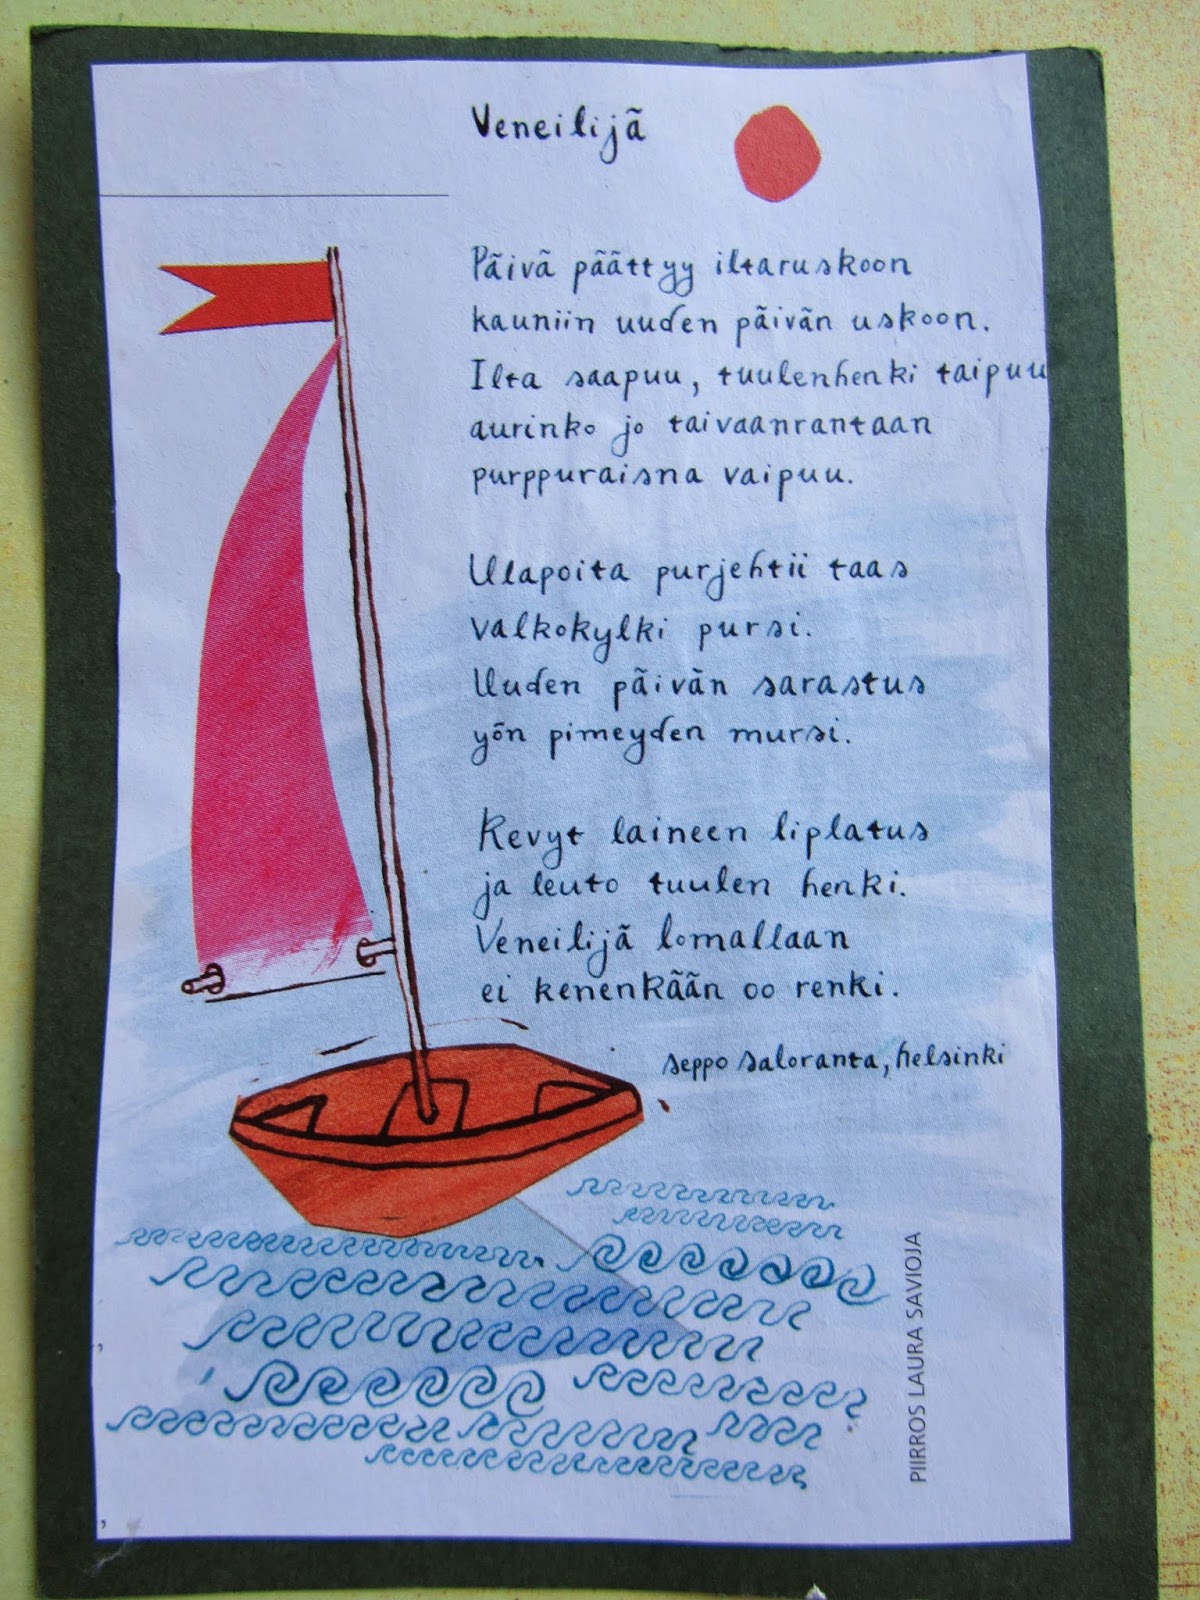 Veneilijä
Päivä päättyy iltaruskoon
kauniin uuden päivän uskoon.
Ilta saapuu, tuulenhenki taipuu
aurinko jo taivaanrantaan
purppuraisna vaipuu.
Ulapoita purjehtii taas
valkokylki pursi.
Uuden päivän sarastus
yön pimeyden mursi.
Kevyt laineen liplatus
ja leuto tuulen henki.
Veneilijä lomallaan
ei kenenkään oo renki.
seppo saloranta, helsinki
PIIRROS LAURA SAVIOJA